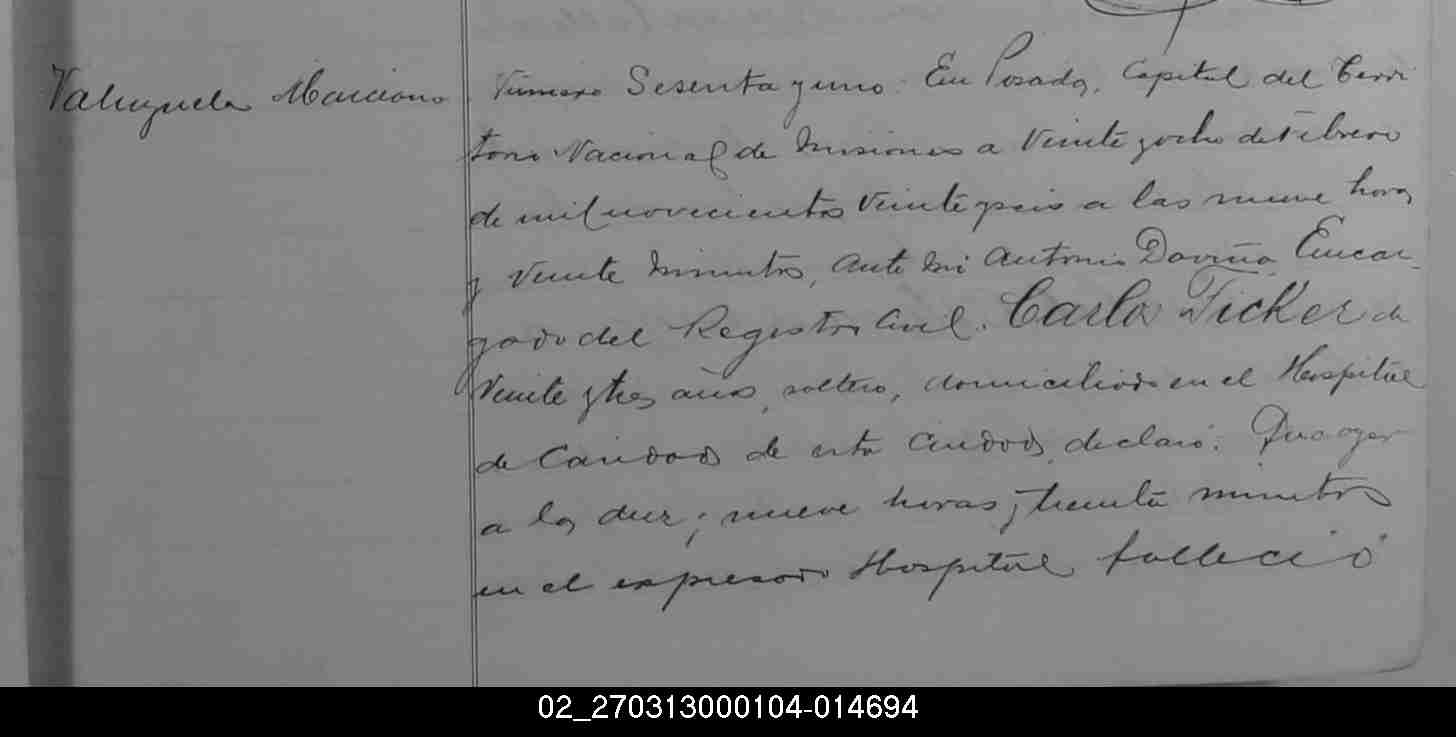 Valenzuela Marciano
Número Sesenta y uno. En Posadas, Capital del Terri
torio Nacional de Misiones a veinte y ocho de Febrero
de mil novecientos veinte y seis a las nueve horas
y veinte minutos, ante mi Antonio Daviña Encar-
gado del Registro Civil. Carlos Ticker de
veinte y tres años, soltero, domiciliado en el Hospital
de Caridad de esta Ciudad, declaró: Que ayer
a las diez y nueve horas y treinta minutos
en el expresado Hospital falleció
02_270313000104-014694